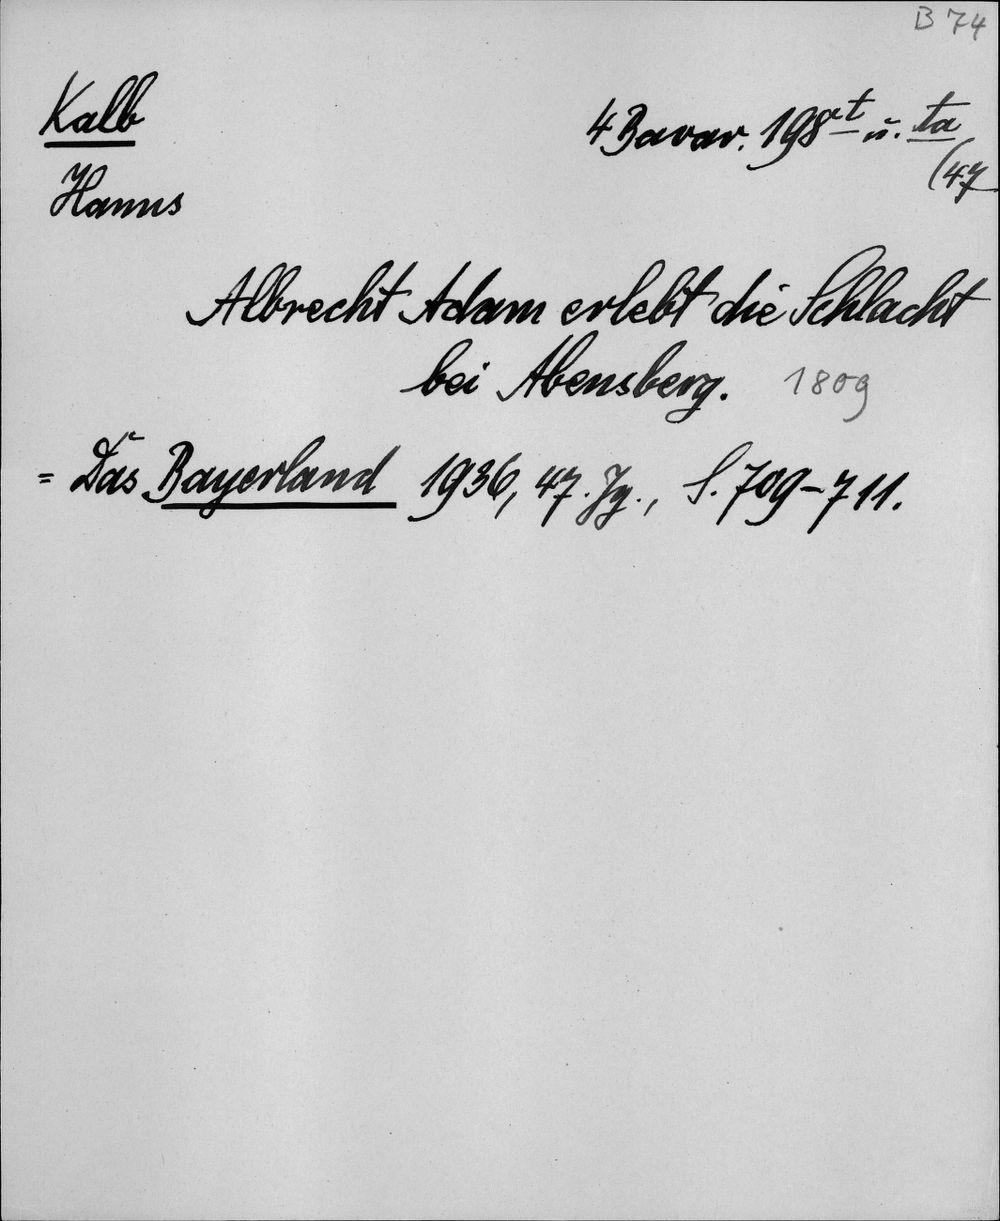 B 74
Kalb
4 Bavar. 198 xt u. ta
(47
Hanns
Albrecht Adam erlebt die Schlacht
bei Abensberg. 1809
= Das Bayerland 1936, 47. Jg., S. 709-711.